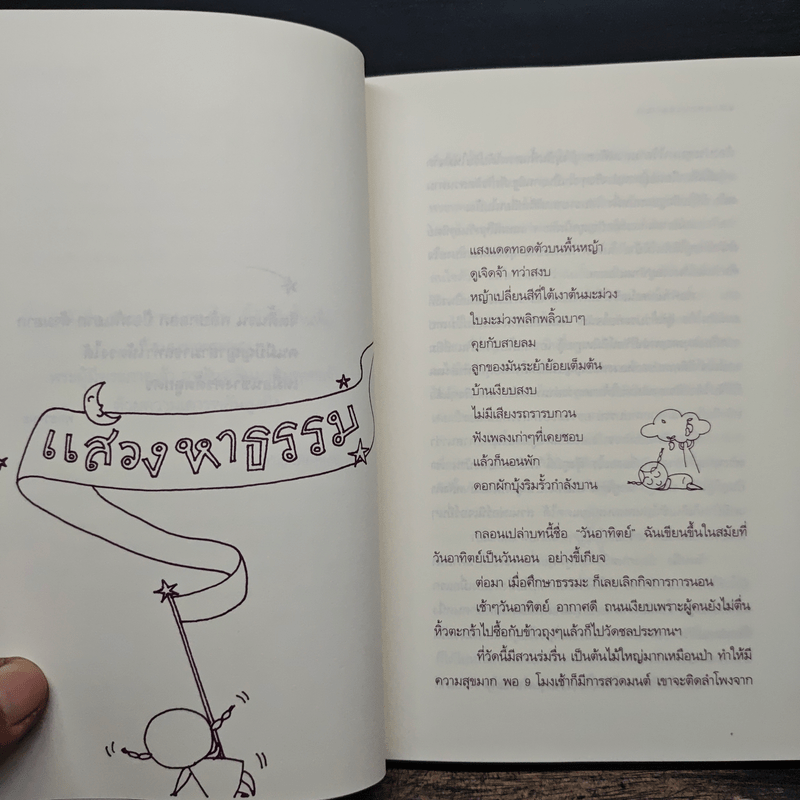 แสวงหาธรรม
แสงแดดทอดตัวบนพื้นหญ้า
ดูเจิดจ้า ทว่าสงบ
หญ้าเปลี่ยนสีที่ใต้เงาต้นมะม่วง
ใบมะม่วงพลิกพลิ้วเบาๆ
คุยกับสายลม
ลูกของมันระย้าย้อยเต็มต้น
บ้านเงียบสงบ
ไม่มีเสียงรถรารบกวน
ฟังเพลงเก่าๆที่เคยชอบ
แล้วก็นอนพัก
ดอกผักบุ้งริมรั้วกำลังบาน
กลอนเปล่าบทนี้ชื่อ “วันอาทิตย์” ฉันเขียนขึ้นในสมัยที่
วันอาทิตย์เป็นวันนอน อย่างขี้เกียจ
ต่อมา เมื่อศึกษาธรรมะ ก็เลยเลิกกิจการการนอน
เช้าๆวันอาทิตย์ อากาศดี ถนนเงียบเพราะผู้คนยังไม่ตื่น
หิ้วตะกร้าไปซื้อกับข้าวถุงๆแล้วก็ไปวัดชลประทานฯ
ที่วัดนี้มีสวนร่มรื่น เป็นต้นไม้ใหญ่มากเหมือนป่า ทำให้มี
ความสุขมาก พอ 9 โมงเช้าก็มีการสวดมนต์ เขาจะติดลำโพงจาก